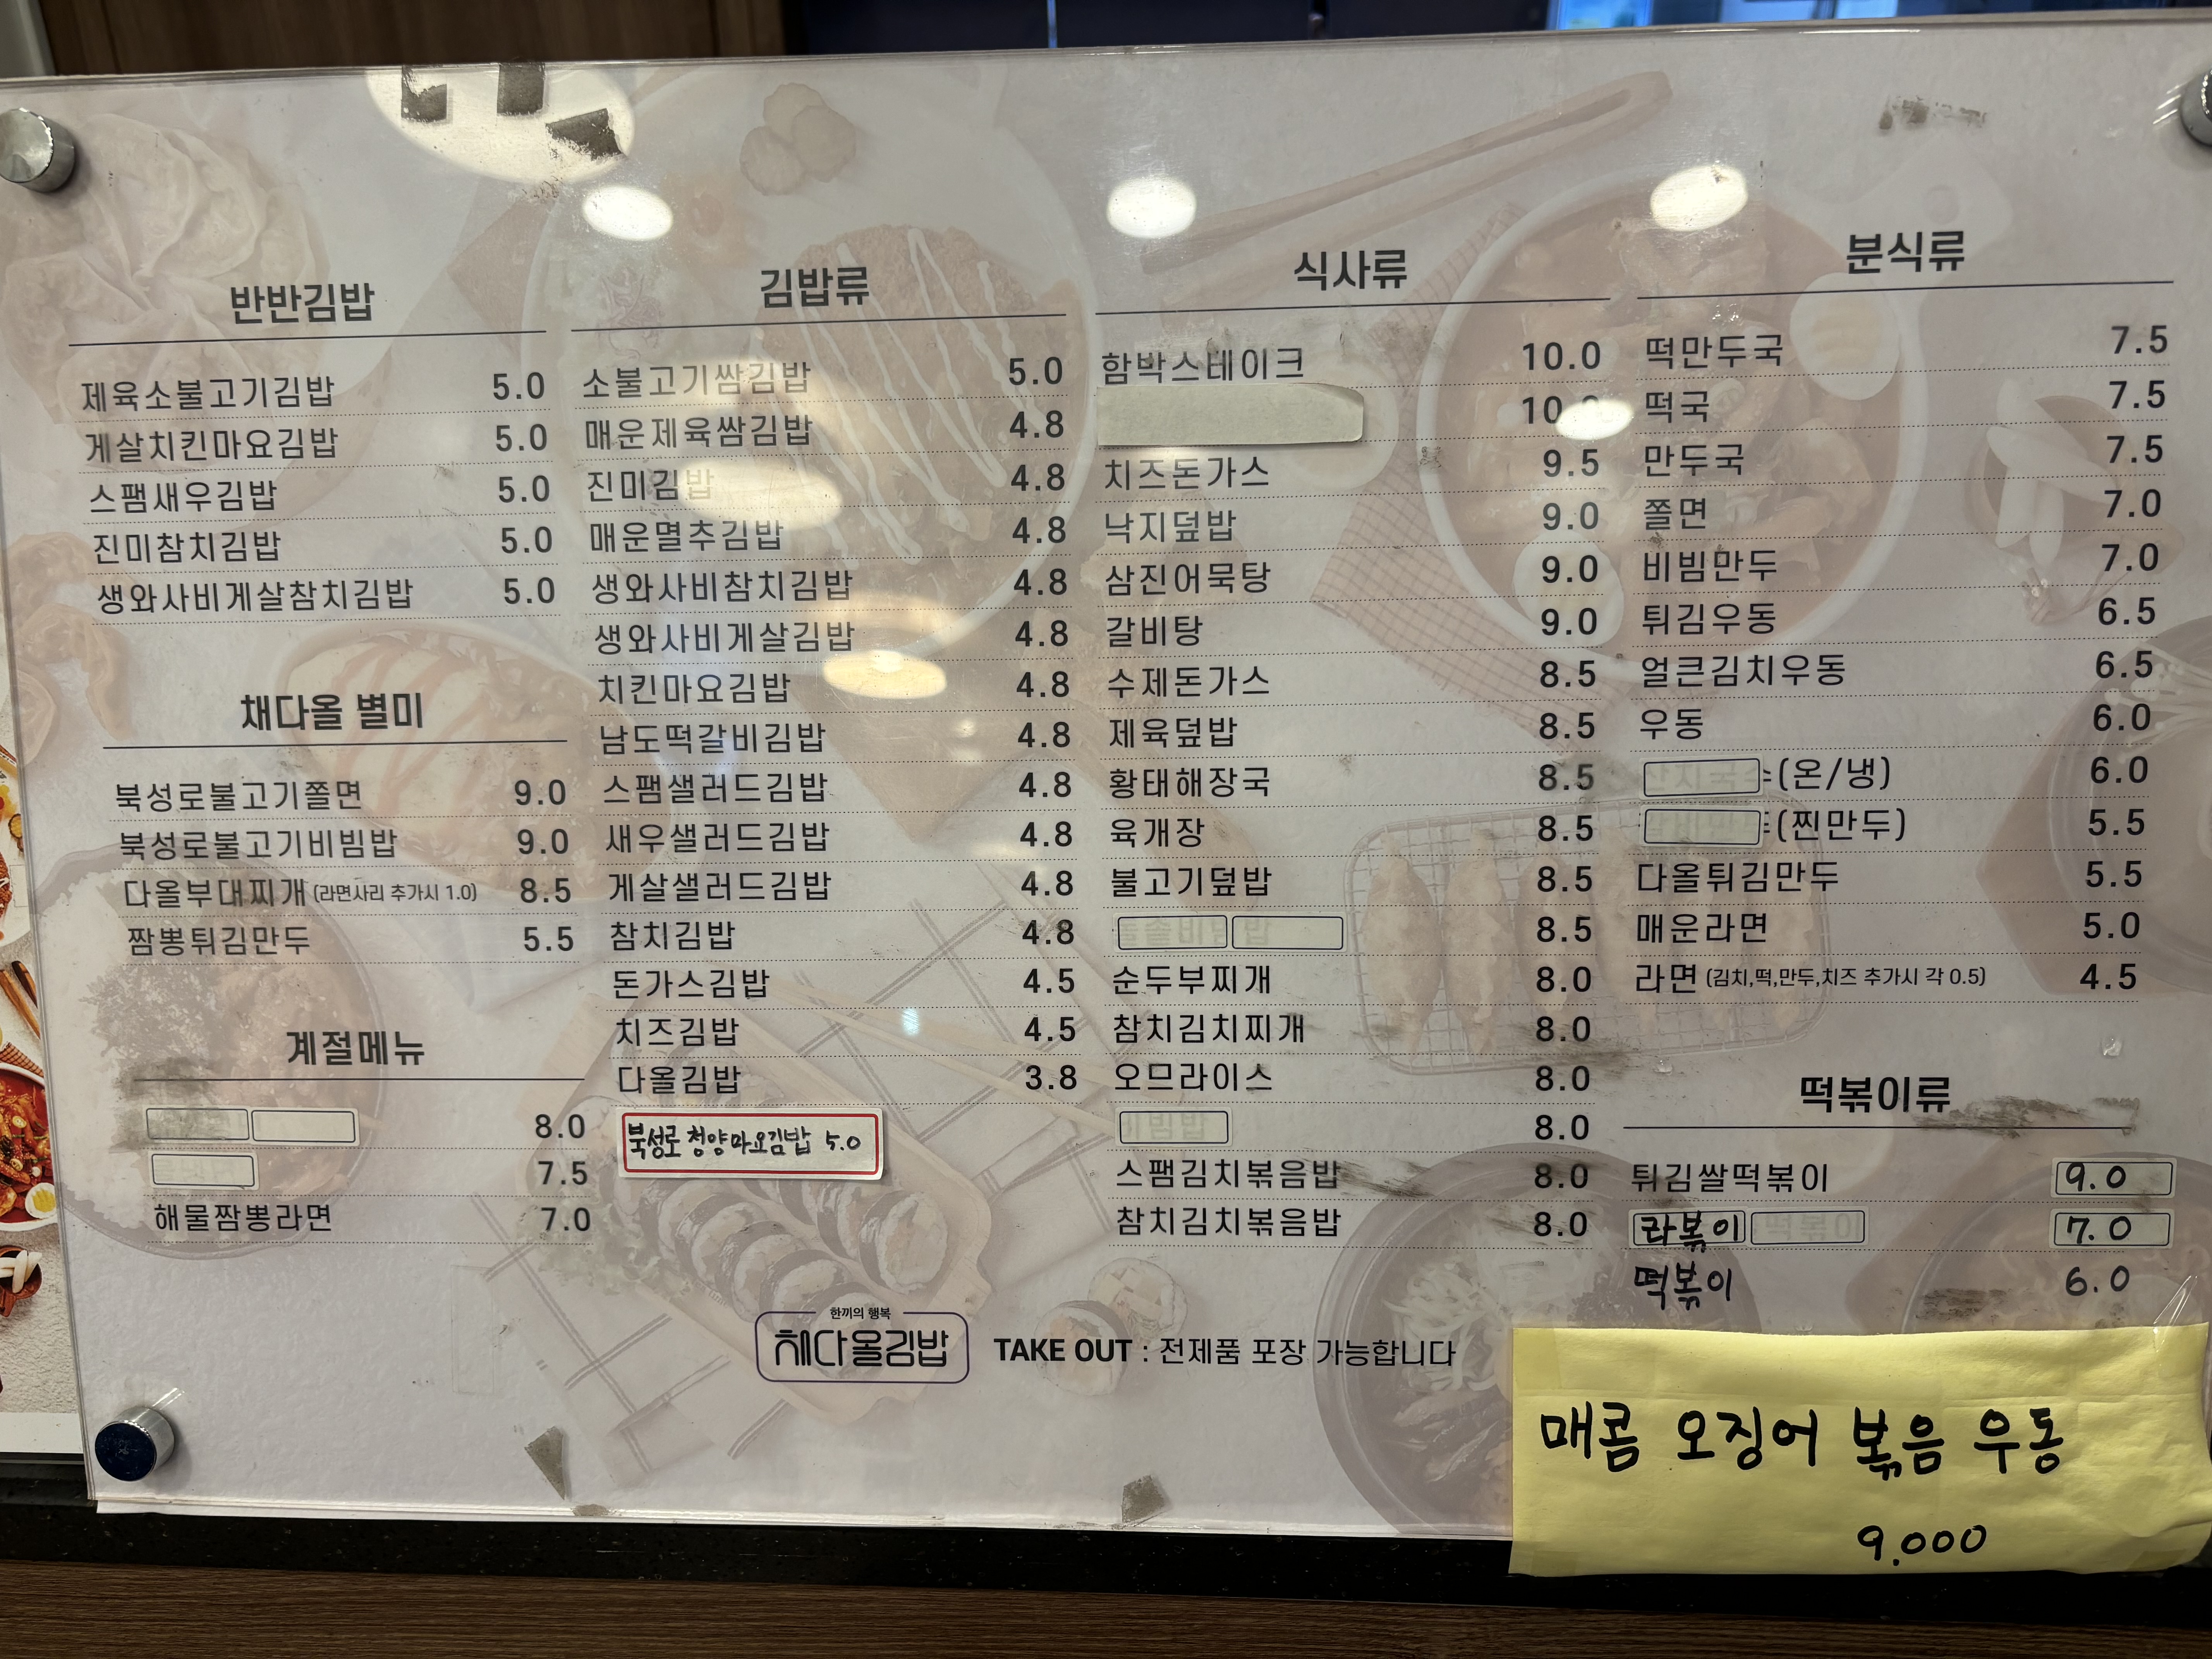 반반김밥
제육소불고기김밥 5.0
게살치킨마요김밥 5.0
스팸새우김밥 5.0
진미참치김밥 5.0
생와사비게살참치김밥 5.0
채다올 별미
북성로불고기쫄면 9.0
북성로불고기비빔밥 9.0
다올부대찌개 (라면사리 추가시 1.0) 8.5
짬뽕튀김만두 5.5
계절메뉴
8.0
7.5
해물짬뽕라면 7.0
김밥류
소불고기쌈김밥 5.0
매운제육쌈김밥 4.8
진미김밥 4.8
매운멸추김밥 4.8
생와사비참치김밥 4.8
생와사비게살김밥 4.8
치킨마요김밥 4.8
남도떡갈비김밥 4.8
스팸샐러드김밥 4.8
새우샐러드김밥 4.8
게살샐러드김밥 4.8
참치김밥 4.8
돈가스김밥 4.5
치즈김밥 4.5
다올김밥 3.8
북성로 청양마요김밥 5.0
식사류
함박스테이크 10.0
치즈돈가스 9.5
낙지덮밥 9.0
삼진어묵탕 9.0
갈비탕 9.0
수제돈가스 8.5
제육덮밥 8.5
황태해장국 8.5
육개장 8.5
불고기덮밥 8.5
8.5
순두부찌개 8.0
참치김치찌개 8.0
오므라이스 8.0
8.0
스팸김치볶음밥 8.0
참치김치볶음밥 8.0
분식류
떡만두국 7.5
떡국 7.5
만두국 7.5
쫄면 7.0
비빔만두 7.0
튀김우동 6.5
얼큰김치우동 6.5
우동 6.0
(온/냉) 6.0
(찐만두) 5.5
다올튀김만두 5.5
매운라면 5.0
라면 (김치,떡,만두,치즈 추가시 각 0.5) 4.5
떡볶이류
튀김쌀떡볶이 9.0
라볶이 7.0
떡볶이 6.0
한끼의 행복
채다올김밥
TAKE OUT : 전제품 포장 가능합니다
매콤 오징어 볶음 우동
9.000